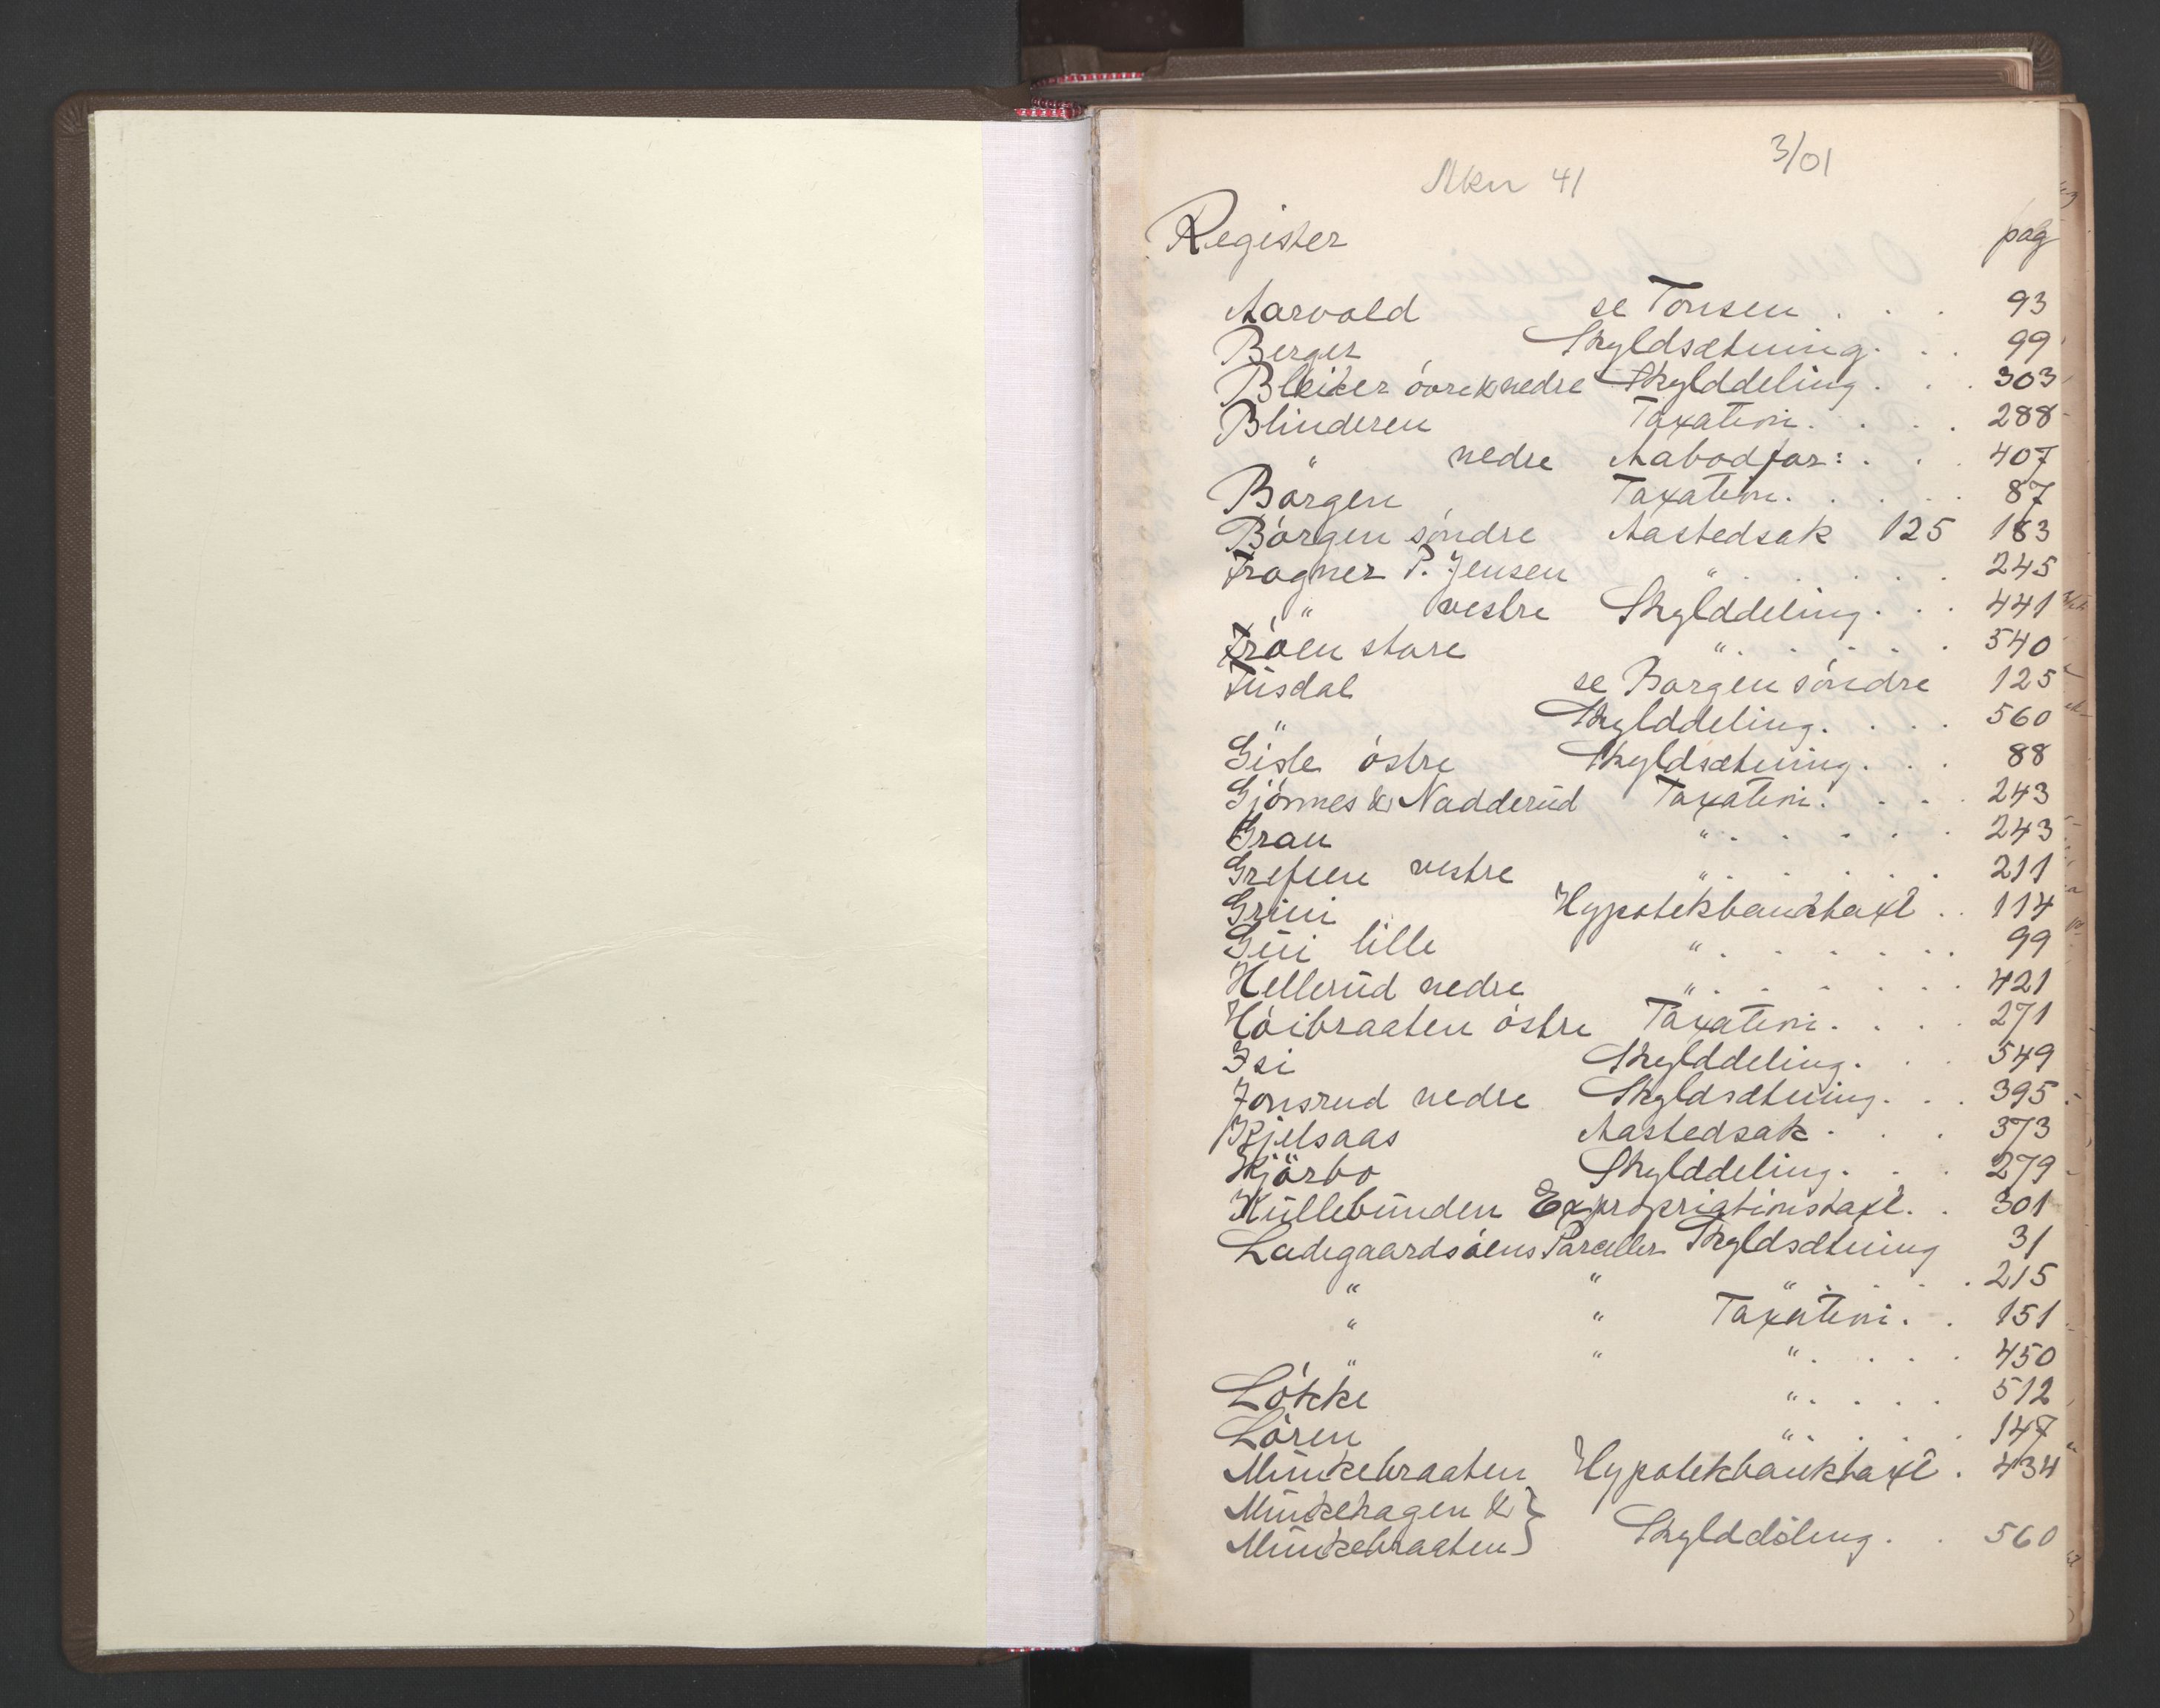 3/01
Mkr 41
Register pag
Aarvold se Tonsen . . . 93
Berger Skyldsætning . . . 99
Bleiker övre & nedre Skylddeling . . . 303
Blinderen Taxation . . . . 288
" nedre Aabodfor: . . . 407
Borgen Taxation . . . . . 87
Borgen söndre Aastedsak 125 183
Frogner P. Jensen " . . . . . 245
" vestre Skylddeling . . . 441
Fröen store " . . . . . 540
Fusdal se Borgen söndre 125
" Skylddeling . . . . 560
Gisle östre Skyldsætning . . . 88
Gjönnes & Nadderud Taxation . . . . 243
Gran " . . . . . 243
Grefsen vestre " . . . . . 211
Grini Hypotekbanktaxt . . 114
Gui lille " . . . . . . 99
Hellerud nedre " . . . . . . 421
Höibraaten östre Taxation . . . . 271
Isi Skylddeling . . . 549
Jonsrud nedre Skyldsætning . . . 395
Kjelsaas Aastedsak . . . 373
Kjörbo Skylddeling . . . 279
Küllebunden Expropriationstaxt . . 301
Ladegaardsöens Parceller Skyldsætning 31
" " " . . . . 215
" " Taxation . . 151
" " " . . . . 450
Lökke " . . . . 512
Lören " . . . . 147
Munkebraaten Hypotekbanktaxt . 434
Munkehagen & }
Munkebraaten } Skylddöling . . 560